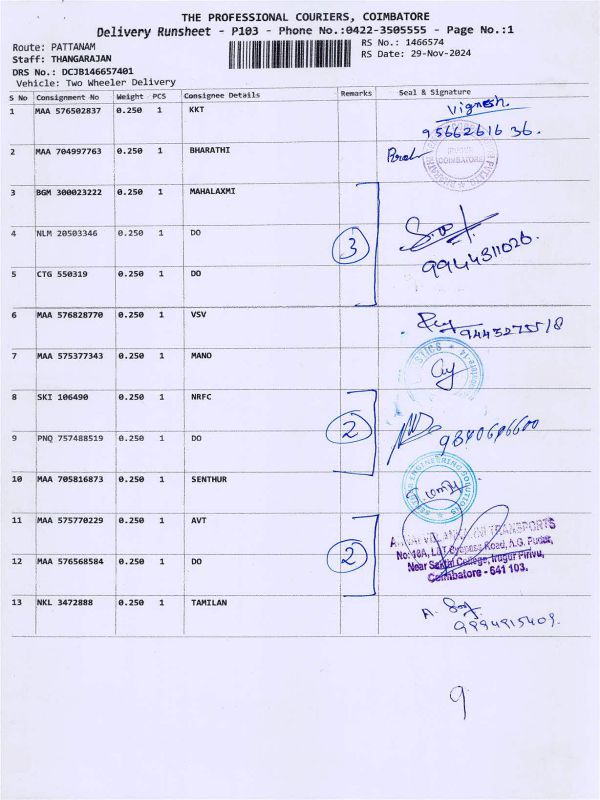 THE PROFESSIONAL COURIERS, COIMBATORE
Delivery Runsheet - P103 - Phone No.:0422-3505555 - Page No.:1
Route: PATTANAM
RS No.: 1466574
Staff: THANGARAJAN
RS Date: 29-Nov-2024
DRS No.: DCJB146657401
Vehicle: Two Wheeler Delivery
S No Consignment No Weight PCS Consignee Details Remarks Seal & Signature
1 MAA 576502837 0.250 1 KKT Vignesh.
9566261636.
2 MAA 704997763 0.250 1 BHARATHI
COIMBATORE
3 BGM 300023222 0.250 1 MAHALAXMI
4 NLM 20503346 0.250 1 DO
3
9944311026.
5 CTG 550319 0.250 1 DO
6 MAA 576828770 0.250 1 VSV
9445275518
7 MAA 575377343 0.250 1 MANO
8 SKI 106490 0.250 1 NRFC
2
9 PNQ 757488519 0.250 1 DO
10 MAA 705816873 0.250 1 SENTHUR
ENGINEERING SOLUTIONS
11 MAA 575770229 0.250 1 AVT
TRANSPORTS
2
No:18A, L&T Bypass Road, A.G. Pudur,
12 MAA 576568584 0.250 1 DO
Near Sakthi College, Irugur Pirivu,
Coimbatore - 641 103.
13 NKL 3472888 0.250 1 TAMILAN
9994915409.
9